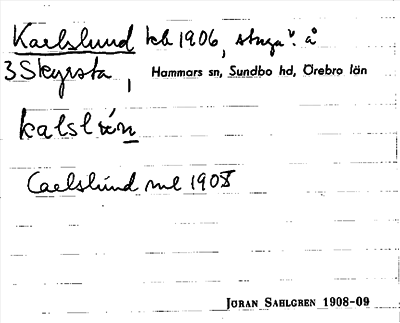 Karlslund kb 1906, stuga å
3 Skyrsta, Hammars sn, Sundbo hd, Örebro län
Carlslund 1908
JÖRAN SAHLGREN 1908-09